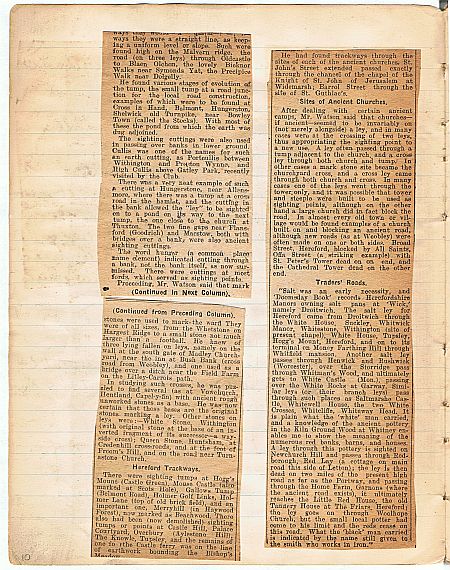 ways they were a straight line, as keep-
ing a uniform level or slope. Such were
found high on the Malvern ridge, the
road (on three leys) through Oldcastle
to Blaen Olchon, the lovely Bicknor
Walks near Symonds Yat, the Precipice
Walk near Dolgelly.
He found various stages of evolution of
the tump, the small tump at a road junc-
tion for the local road construction,
examples of which were to be found at
Cross in Hand, Belmont, Hungerston,
Shelwick old Turnpike, near Bowley
Town (called the Socks). With most of
these the pond from which the earth was
dug adjoined.
The sighting cuttings were also used
in passing over banks in lower ground.
Callis was one of the names of such
an earth cutting, as Portcullis between
Withington and Preston Wynne, and
High Callis above Gatley Park, recently
visited by the Club.
There was a very neat example of such
a cutting at Hungerstone, near Allens-
more, where there was a tump at a cross
road in the hamlet, and the cutting in
the bank allowed the "ley" to be sighted
on to a pond on its way to the next
tump, the one close to the church at
Thruxton. The two fine gaps near Flanes-
ford (Goodrich) and Marstow, both with
bridges over a bank were also ancient
sighting cuttings.
The word hungry (a common place
name element) indicated cutting through
a bank, not the bank itself, as now sur-
mised. There were cuttings at most
fords, which served as sighting points.
Preceding, Mr. Watson said that mark
(Continued in Next Column).
(Continued from Preceding Column).
stones were used to mark the way. They
were of all sizes, from the Whetstone on
Hargest Ridge to a small stone not much
larger than a football. He knew of
three lying fallen on leys, namely one by
wall at the south gate of Madley Church-
yard, near the inn at Bush Bank (cross
road from Weobley), and one used as a
bridge over a ditch near the Field Farm
on the Litley-Carrots path.
In studying such crosses, he was puz-
zled to find several (as at Vowchurch,
Hentland, Capel-y-fin) with ancient rough
unworked stones as a base. He was now
certain that those bases are the original
stones, marking a ley. Other stones on
leys were:—White Stone, Withington
(with original stone at the base of an in-
verted fragment of its successor—a way-
side cross); Queen Stone, Huntsham, at
Credenhill crossroads, and at the foot of
Froom's Hill, and on the road near Turn-
astone Church.
Hereford Trackways.
There were sighting tumps at Hogg's
Mount (Castle Green), Mouse Castle (also
marked at Scots Hole), Gallows Tump
(Belmont Road), Holmer Golf Links, Hol-
mer Lane (top of old brick field), and an
important one, Merryhill (in Haywood
Forest), now marked as Beachwood. There
also had been (now demolished) sighting
tumps or points at Castle Hill, Palace
Courtyard, Overbury (Aylestone Hill),
The Knowle, Tupsley, and the remains of
one to the Castle ferry was on the line
of earthwork bounding the Bishop's
He had found trackways through the
sites of each of the ancient churches. St.
John's Street extended passed exactly
through the chancel of the chapel of the
Knight of St. John of Jerusalem at
Widemarsh; Barrol Street through the
site of St. Guthlac's.
Sites of Ancient Churches.
After dealing with certain ancient
camps, Mr. Watson said that churches
if ancient—seemed to be invariably on
(not merely alongside) a ley, and in many
cases were at the crossing of two leys,
thus appropriating the sighting point to
a new use. A ley often passed through a
tump adjacent to the church and a cross
ley through both church and tump. In
other cases a mark stone site became the
churchyard cross, and a cross ley came
through both church and cross. In many
cases one of the leys went through the
tower only, and it was possible that tower
and steeple were built to be used as
sighting points, although on the other
hand a large church did in fact block the
road. In almost every old town or vil-
lage would be found examples of a church
built on and blocking an ancient road,
although new roads (as at Weobley) were
often made on one or both sides. Broad
Street, Hereford, blocked by All Saints,
Offa Street (a striking example) with
St. Peter's Tower dead on one end, and
the Cathedral Tower dead on the other
end.
Traders' Roads.
"Salt was an early necessity, and
'Doomsday Book' records Herefordshire
Manors owning salt pans at 'Wich,'
namely Droitwich. The salt ley for
Hereford came from Droitwich through
the White House, Suckley, Whitwick
Manor, Whitestone, Withington (site of
present chapel), White House, Tupsley,
Hogg's Mount, Hereford, and on to its
terminal on Money Farthing Hill) through
Whitfield mansion. Another salt ley
passes through Henwick and Rushwick
(Worcester), over the Storridge pass
through Whitman's Wood, and ultimately
gets to White Castle (Mon.), passing
over the White Rocks at Garway. Simi-
lar leys (or their branch leys) pass
through such places as Saltmarshe Cas-
tle, Whitewell House, the two White
Crosses, Whitecliffe, Whiteway Head. It
is plain what the 'white' man carried,
and a knowledge of the ancient pottery
in the Kiln Ground Wood at Whitney en-
ables me to show the meaning of the
numerous red banks, barns, and houses.
A ley through this pottery is sighted on
Newchurch Hill and passes through Red-
borough, Red Ley (a cottage on the
road this side of Letton), the ley is then
dead on two miles of the present high
road as far as the Portway, and passing
through the Home Farm, Garnons (where
the ancient road exists), it ultimately
reaches the Little Red House, the old
Tannery House at The Friars, Hereford
the ley goes on through Woolhope
Church, but the small local potter had
come to his limit and the reds cease on
this road. What the 'black' man carried
is indicated by the name still given to
the smith who works in iron."
10